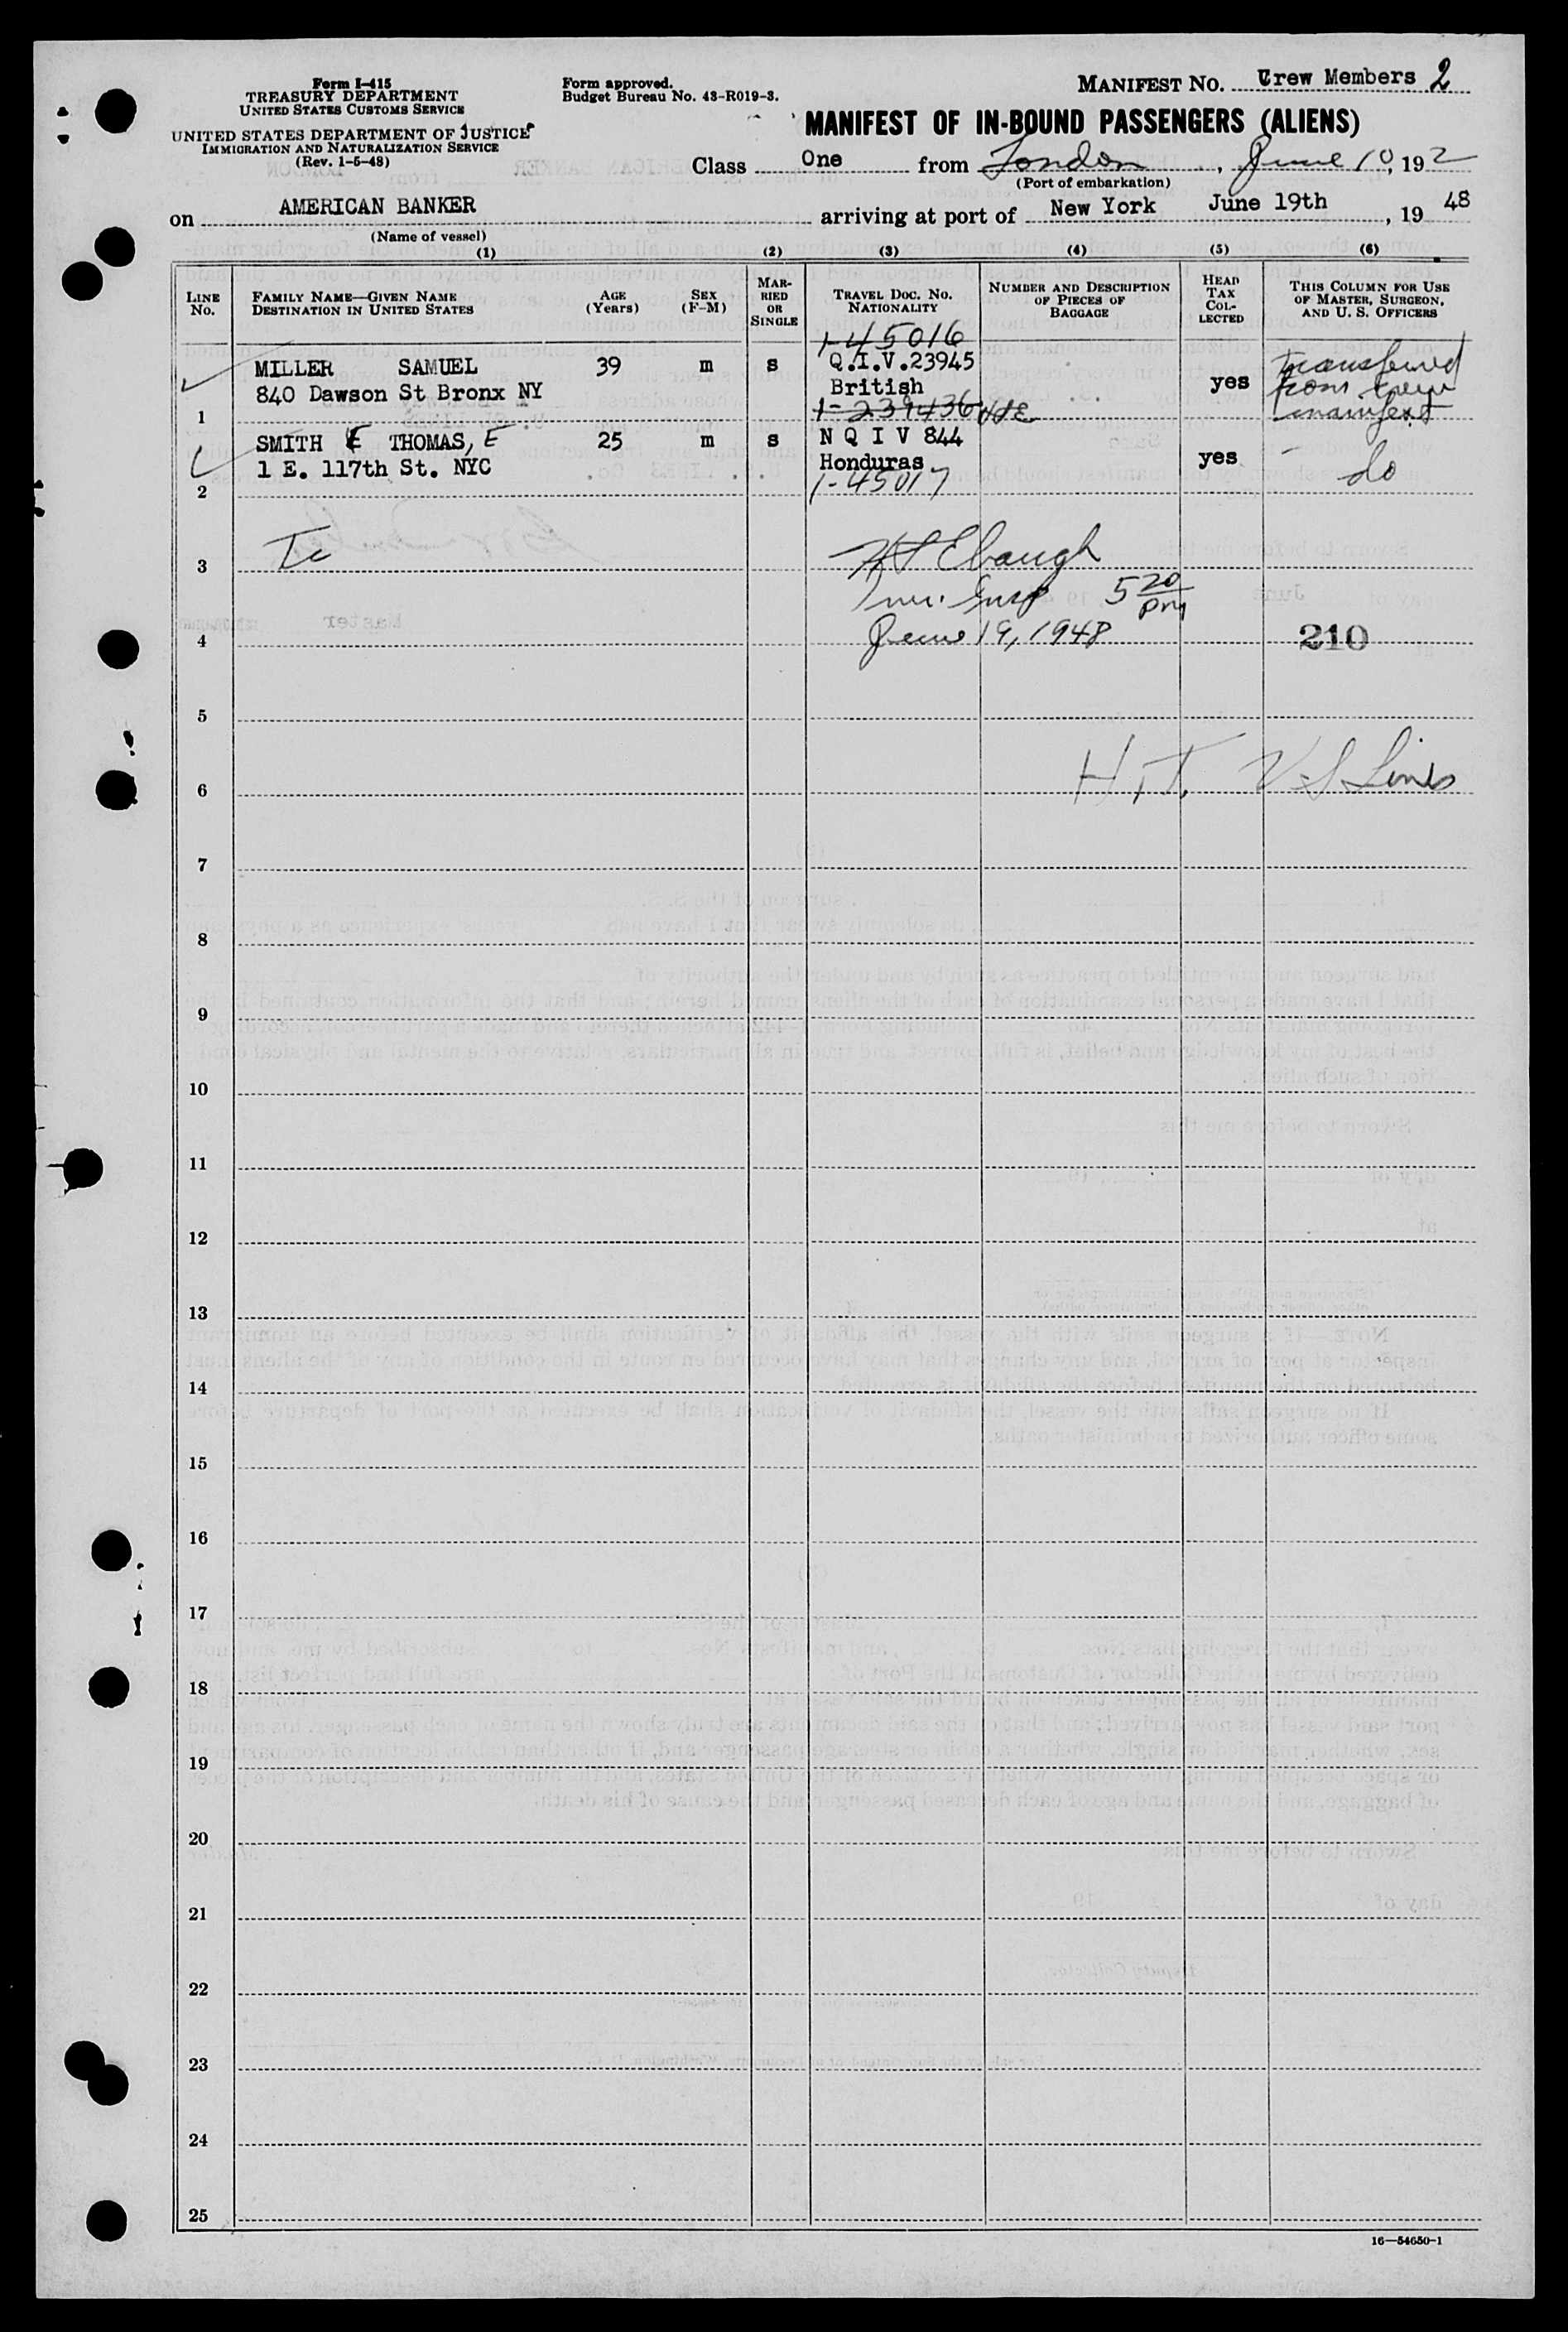 Form I-415
TREASURY DEPARTMENT
UNITED STATES CUSTOMS SERVICE
UNITED STATES DEPARTMENT OF JUSTICE
IMMIGRATION AND NATURALIZATION SERVICE
(Rev. 1-5-48)
Form approved.
Budget Bureau No. 43-R019-3.
MANIFEST No. Crew Members 2
MANIFEST OF IN-BOUND PASSENGERS (ALIENS)
Class One from London, June 10, 192
(Port of embarkation)
on AMERICAN BANKER arriving at port of New York June 19th, 19 48
(Name of vessel)
(1) (2) (3) (4) (5) (6)
LINE No. FAMILY NAME—GIVEN NAME DESTINATION IN UNITED STATES AGE (Years) SEX (F-M) MARRIED OR SINGLE TRAVEL DOC. No. NATIONALITY NUMBER AND DESCRIPTION OF PIECES OF BAGGAGE HEAD TAX COLLECTED THIS COLUMN FOR USE OF MASTER, SURGEON, AND U. S. OFFICERS
1-45016
MILLER SAMUEL 39 m s Q.I.V.23945 transferred
840 Dawson St Bronx NY British yes from crew
1 1-239436 manifest
SMITH E THOMAS, E 25 m s N Q I V 844
1 E. 117th St. NYC Honduras yes - do
2 1-45017
3 Tc H Ebaugh
Imm. Insp 5 20 pm
4 June 19, 1948 210
5
6 H.T. U S Lines
7
8
9
10
11
12
13
14
15
16
17
18
19
20
21
22
23
24
25
16—54650-1